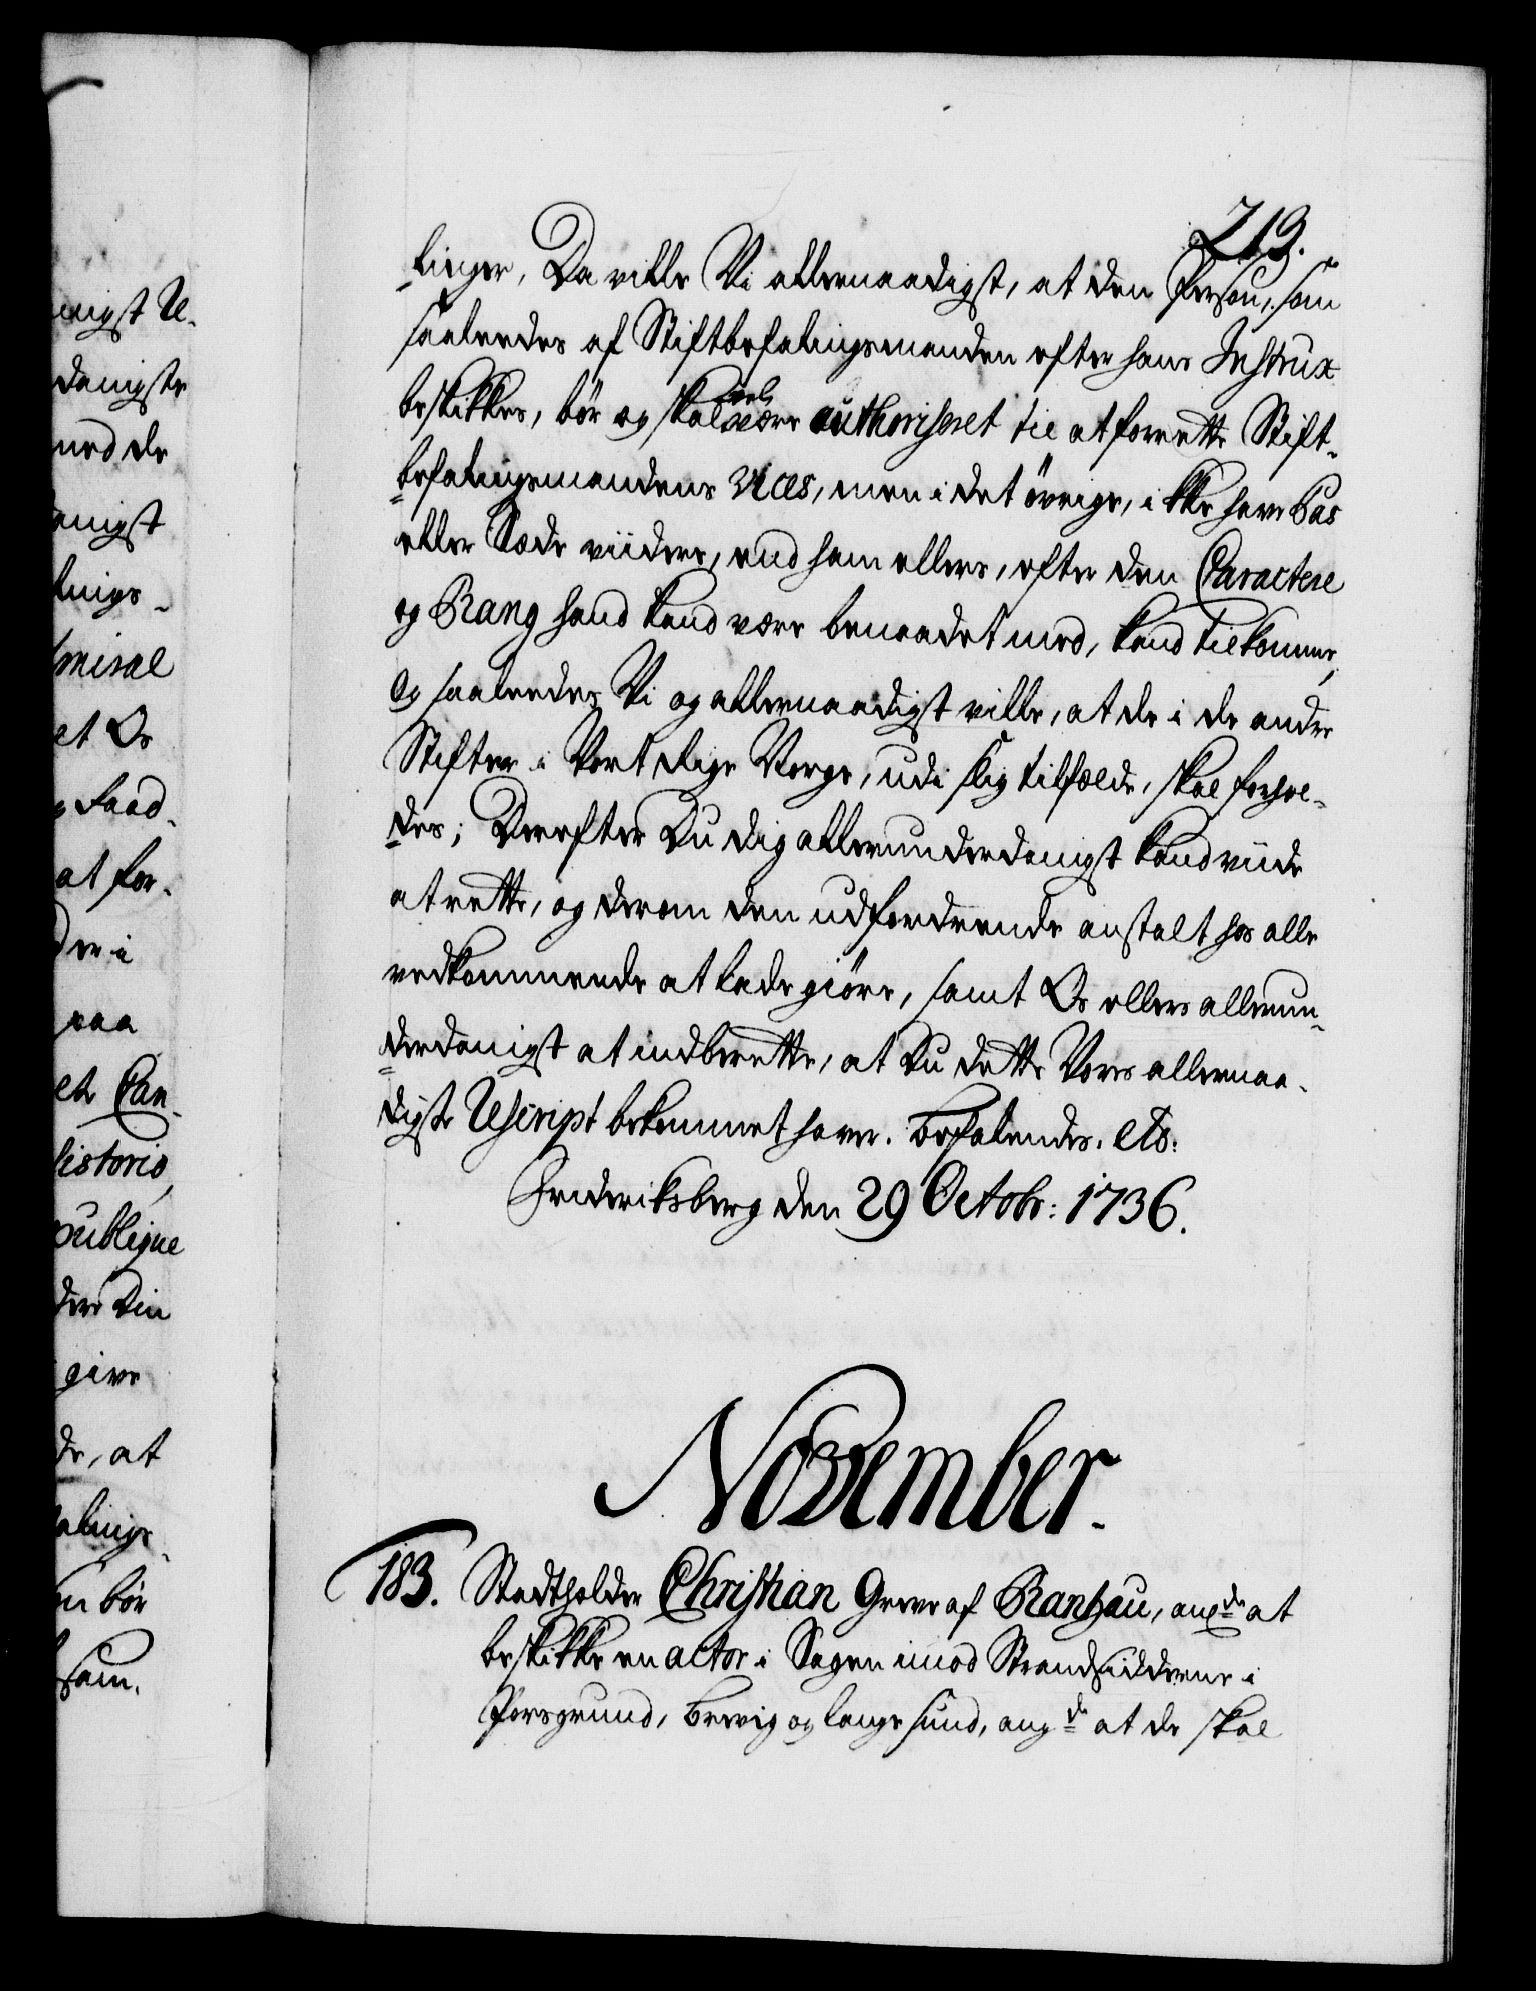 219.
linger, Da ville Vi allernaadigst, at den Person, som
saaleedes af Stiftbefalingsmanden efter hans Instrux
beskikkes, bör og skal vel være authoriseret til at forrette Stift-
befalingsmandens vices, men i det övrige, ikke have Pas
eller Sæde viidere, end ham ellers, efter den Caractere
og Rang hand kand være benaadet med, kand tilkomme,
Og saaleedes Vi og allernaadigst ville, at de i de andre
Stifter i Vort Rige Norge, udi slig tilfælde, skal forhol-
des; Derefter Du dig allerunderdanigst kand viide
at rette, og derom den udfordrende anstalt hos alle
vedkommende at lade giöre, samt Os ellers allerun-
derdanigst at indberette, at Du dette Vores allernaa-
digste Rescript bekommet haver. Befalendes. etc:
Frideriksberg den 29 Octobr: 1736.
November.
183. Stadtholder Christian Greve af Ranzau, angde at
beskikke en actor i Sagen imod Strandsidderne i
Porsgrund, Brevig og Langesund, angde at de skal
enigst U-
danigste
med de
enigst
lings-
et Os
at for-
der i
paa
Can-
publique
dere Din
give
de, at
alings-
en bör
som,